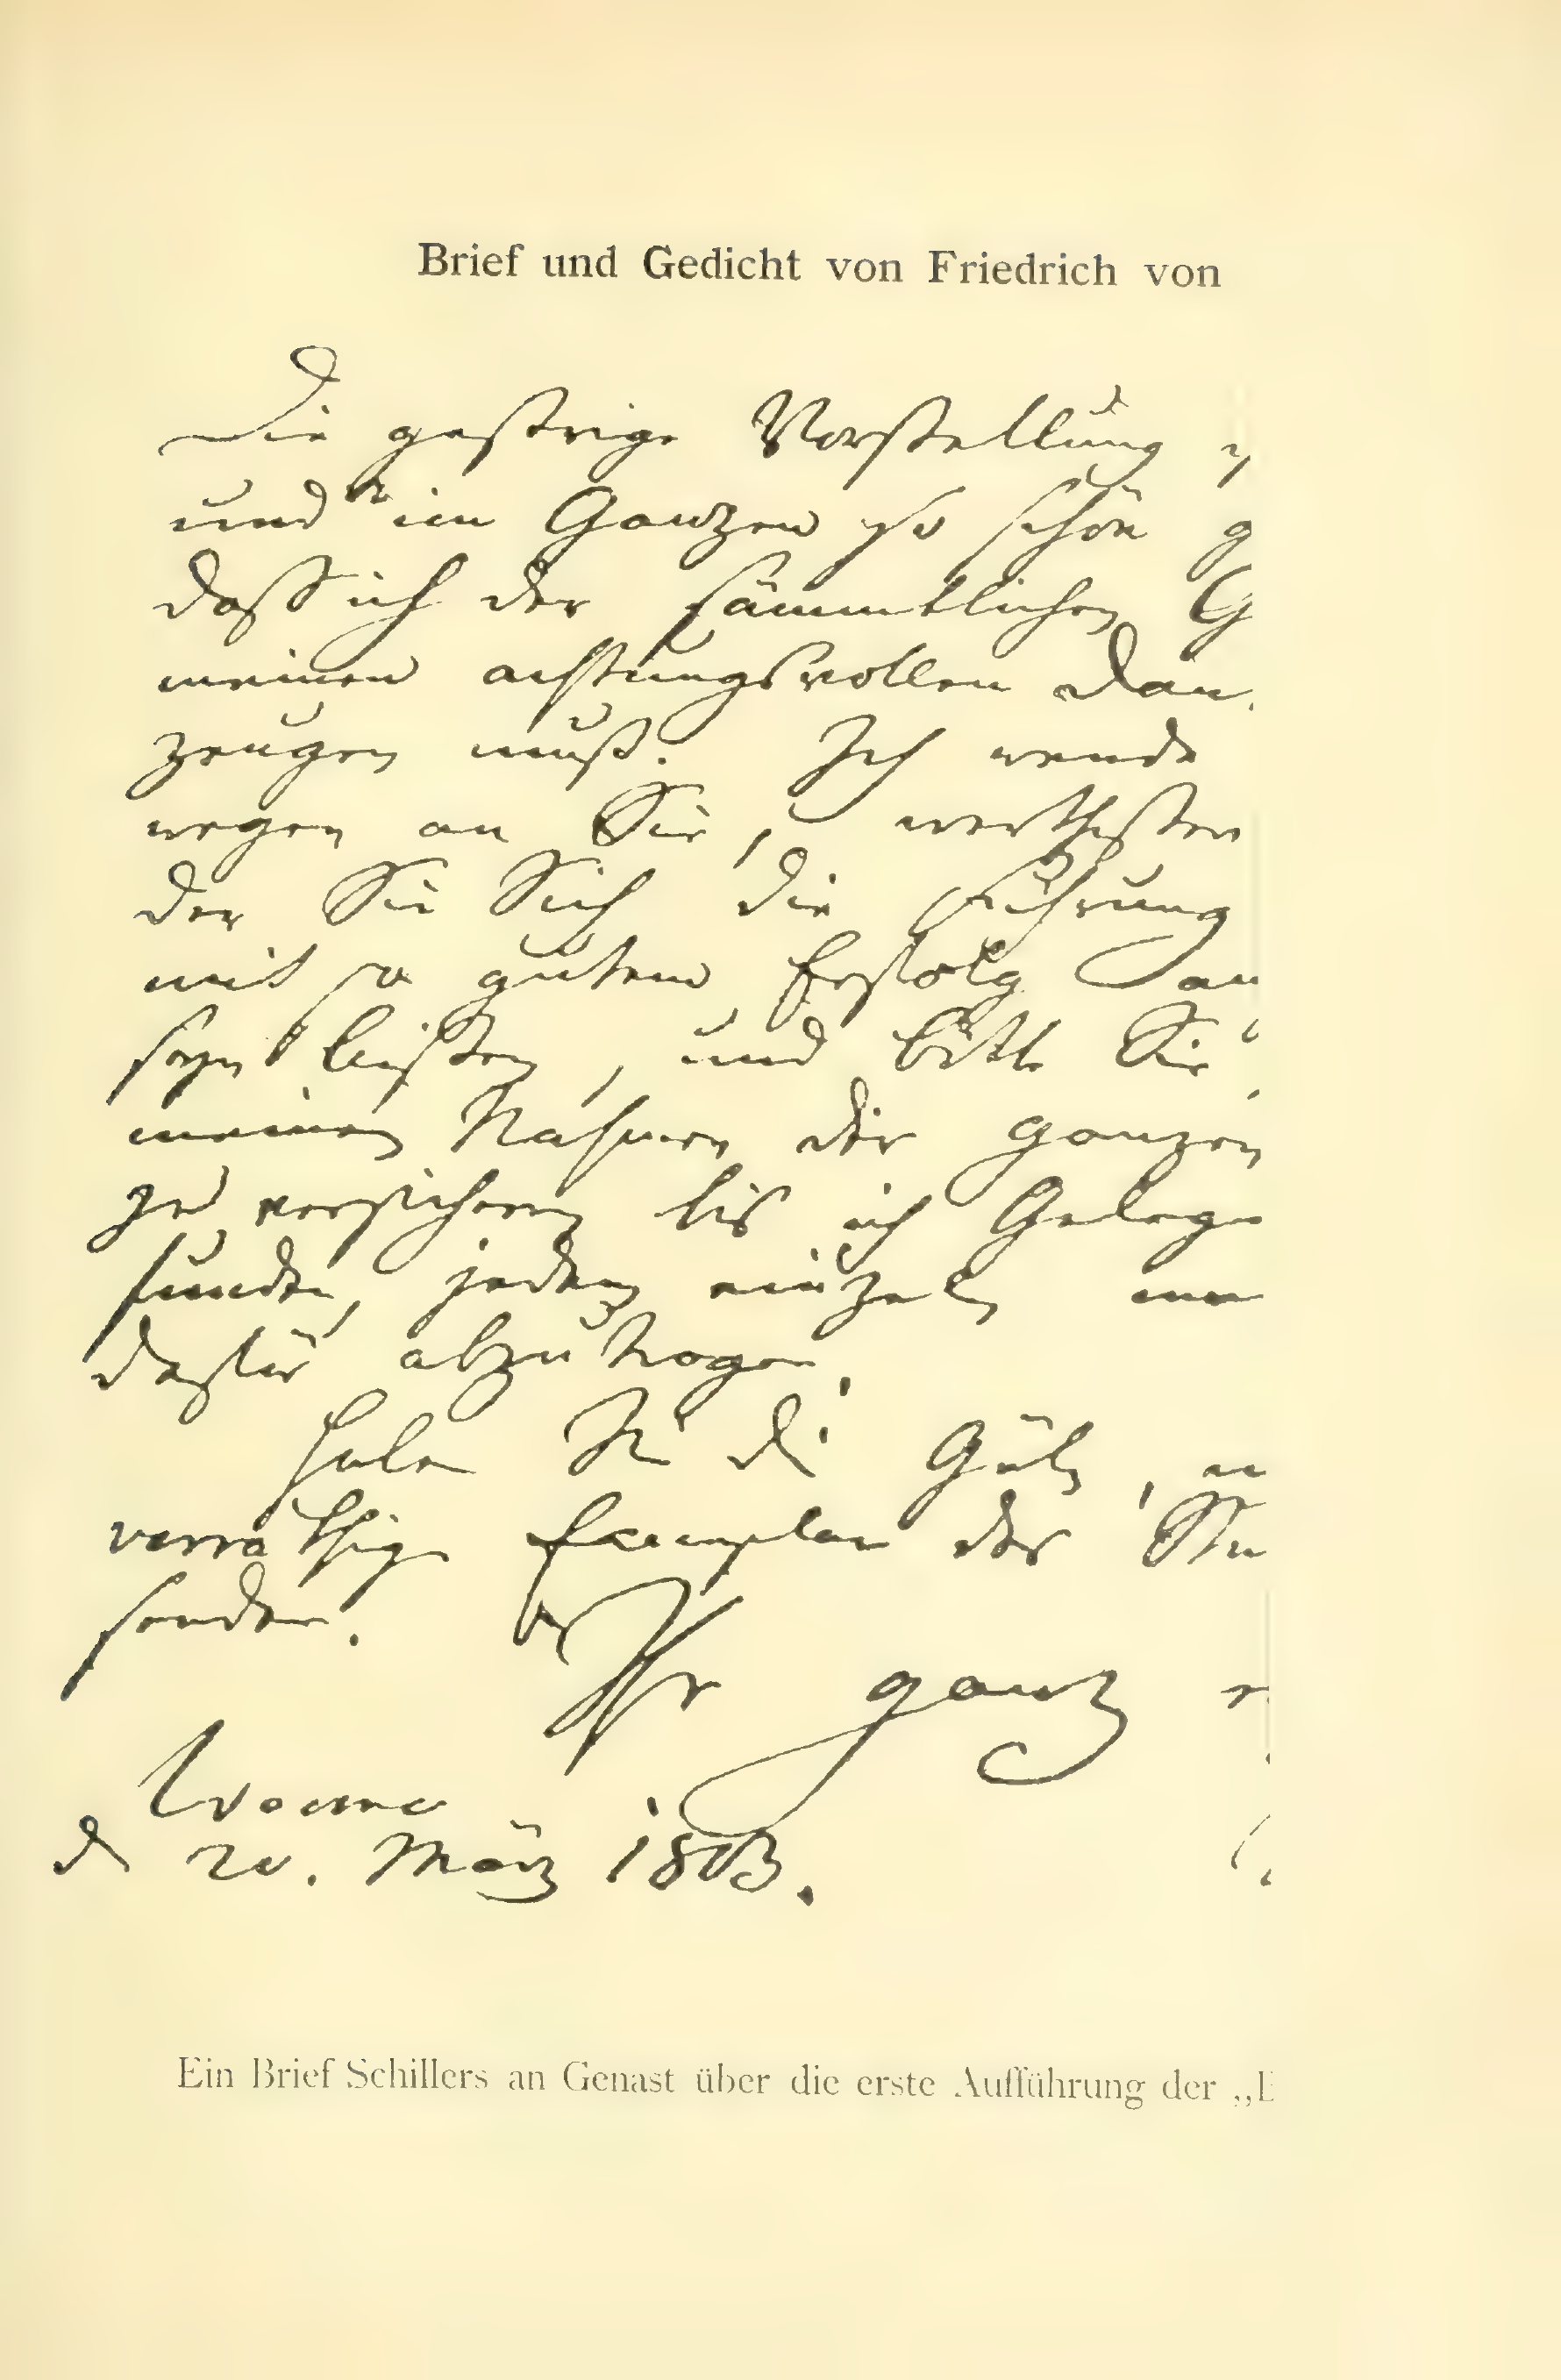 Brief und Gedicht von Friedrich von
Die gestrige Vorstellung
und im Ganzen so schön g
daß ich der sämmtlichen G
meinen achtungsvollen Dan
zeugen muß. Ich wende
wegen an Sie, werthester
der Sie Sich die Führung
mit so gutem Erfolg an
seyn ließen, und bitte Sie
meinen Nahmen der ganzen
zu versichern bis ich Gelege
finden, jedem einzeln
dafür abzutragen.
Haben Sie die Güte,
vorräthige Exemplar der
senden.
Ihr ganz
Weimar
d 20. März 1803.
Ein Brief Schillers an Genast über die erste Aufführung der „